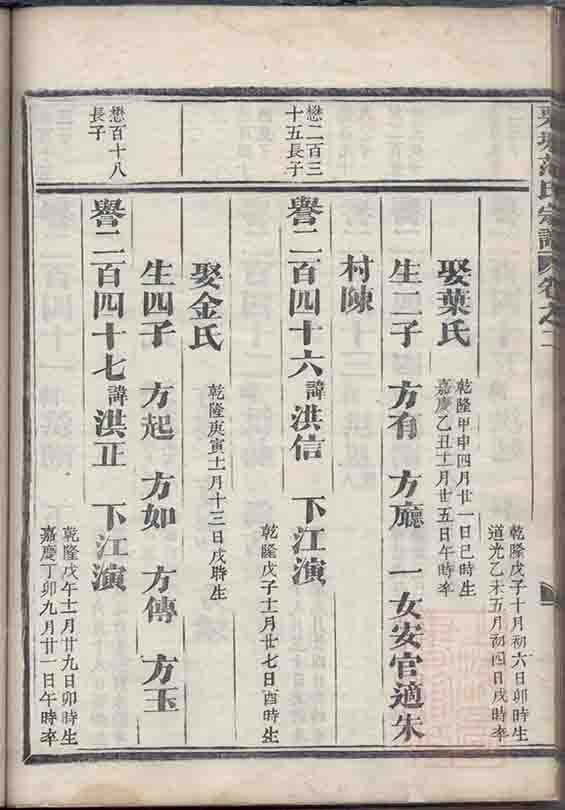 范氏宗譜 卷之二
乾隆戊子十月初六日卯時生
道光乙未五月初四日戌時卒
娶葉氏
乾隆甲申四月廿一日巳時生
嘉慶乙丑十一月廿五日午時卒
生二子 方有 方廳 一女安官適朱
村陳
懋二百三
十五長子
譽二百四十六 諱洪信 下江演
乾隆戊子十一月廿七日酉時生
娶金氏
乾隆庚寅十一月十三日戌時生
生四子 方起 方如 方傳 方玉
懋百十八
長子
譽二百四十七 諱洪正 下江演
乾隆戊午十一月廿九日卯時生
嘉慶丁卯九月廿一日午時卒